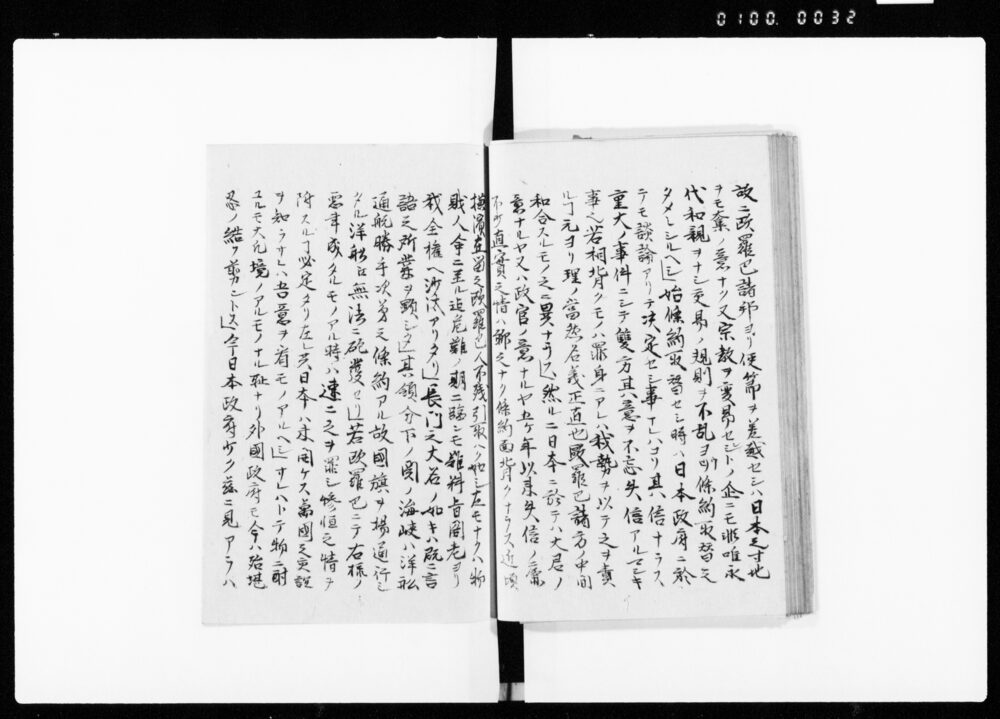 0100.0032
故ニ欧羅巴諸邦ヨリ使節ヲ差越セシハ日本之寸地
ヲモ奪ノ意ナク又宗教ヲ変易セシトノ企ニモ非唯永
代和親ヲナシ交易ノ規則ヲ不乱ヨウ条約取替之
タメトシルヘシ始條約取替セシ時ハ日本政府ニ於
テモ談論アリテ决定セシ事ナレハヨリ其信ナラス
重大ノ事件ニシテ雙方其意ヲ不忘失信アルマシキ
事之若相背クモノハ罪身ニアレハ我勢ヲ以テ之ヲ責
ルヿ元ヨリ理ノ當然名義正直也欧羅巴諸方ノ中間
和合スルモノ之ニ異ナラス然ルニ日本ニ於テハ大君ノ
意ナルヤ又ハ政官ノ意ナルヤ五ケ年以来失信ノ
不少直實之情ハ鄭之ナク條約面背クナラス近頃
横濱在留之欧羅巴人不残引取ハク如シ左モナクハ
賊人争ニ至ル迄危難ノ期ニ臨シモ難料旨閣老ヨリ
我全權ヘ沙汰アリタリ長門之大名ノ如キハ既ニ言
語之所業ヲ顕シタ其領分下ノ関ノ海峡ハ洋船
通航勝手次第之條約アル故國旗ヲ揚通行シ
タル洋船ニ無法ニ砲發セリ若欧羅巴ニテ右様ノ
悪事成タルモノアル時ハ速ニ之ヲ罪シ惨怛之情ヲ
除スルヿ必定タリ左レ共日本ハ未開ケス萬國之
ヲ知ラサレハ吾意ヲ有モノアルヘシサレハトテ物ニ耐
ユルモ大凡境ノアルモノナル耻ナリ外國政府モ今ハ殆堪
忍ノ緒ノ剪ントス今日本政府少ク茲ニ見アラハ